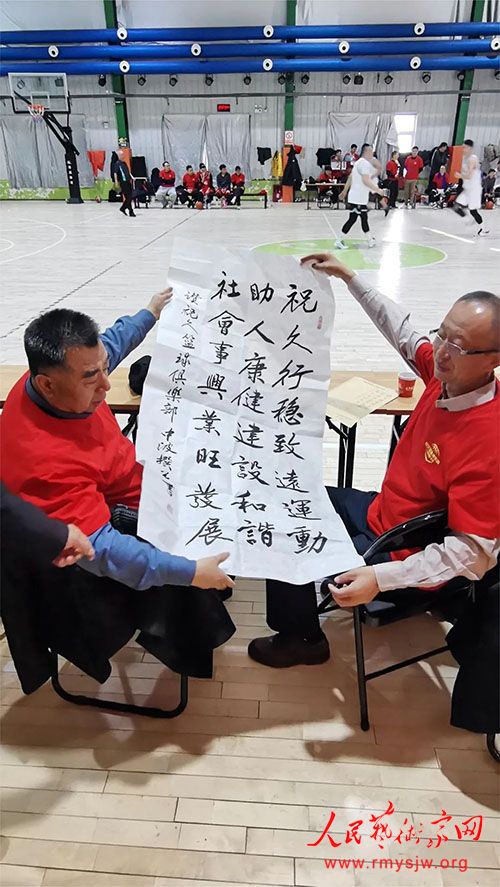 祝久行稳致遠運動
助人康健建設和諧
社會事興業旺發展
謹祝久籃球俱樂部
人民藝術家网
www.rmysjw.org